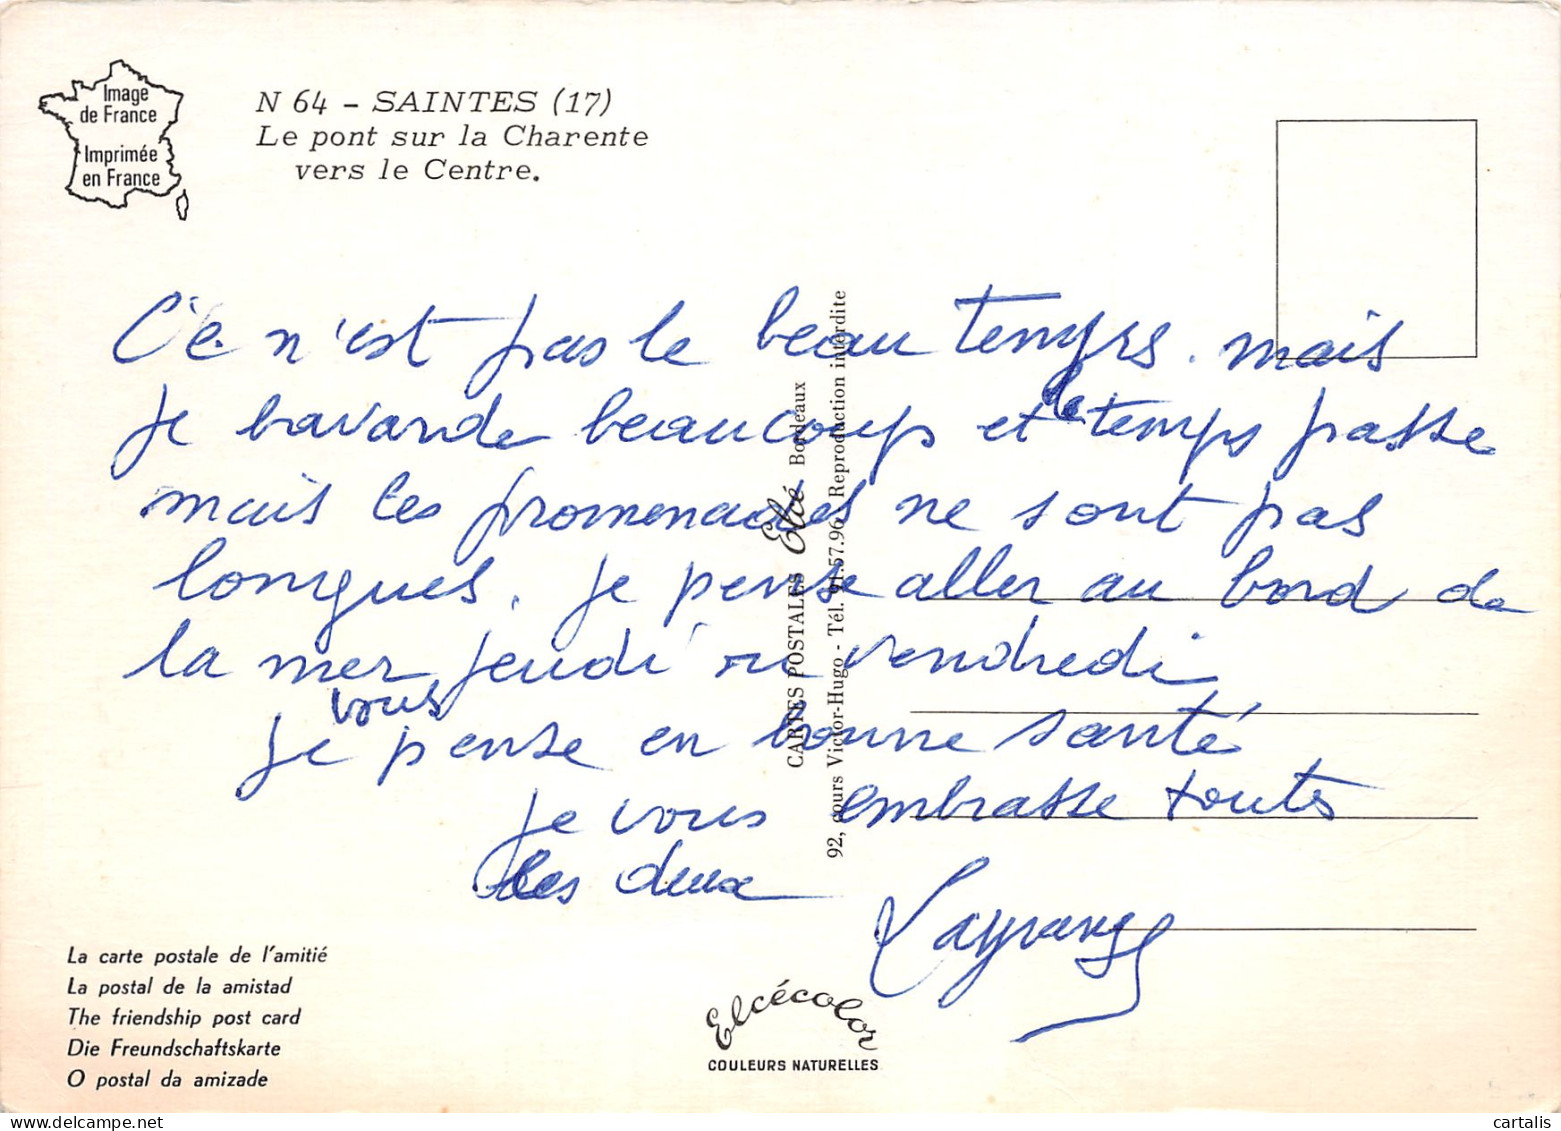 Image
de France
Imprimée
en France
N 64 - SAINTES (17)
Le pont sur la Charente
vers le Centre.
Ce n'est pas le beau temps. mais
je bavarde beaucoup et le temps passe
mais les promenades ne sont pas
longues. je pense aller au bord de
la mer jeudi ou vendredi
je vous pense en bonne santé
je vous embrasse toutes
les deux
CARTES POSTALES Elcé Bordeaux
92, cours Victor-Hugo - Tél. 91.57.96 - Reproduction interdite
La carte postale de l'amitié
La postal de la amistad
The friendship post card
Die Freundschaftskarte
O postal da amizade
Elcécolor
COULEURS NATURELLES
cartalis